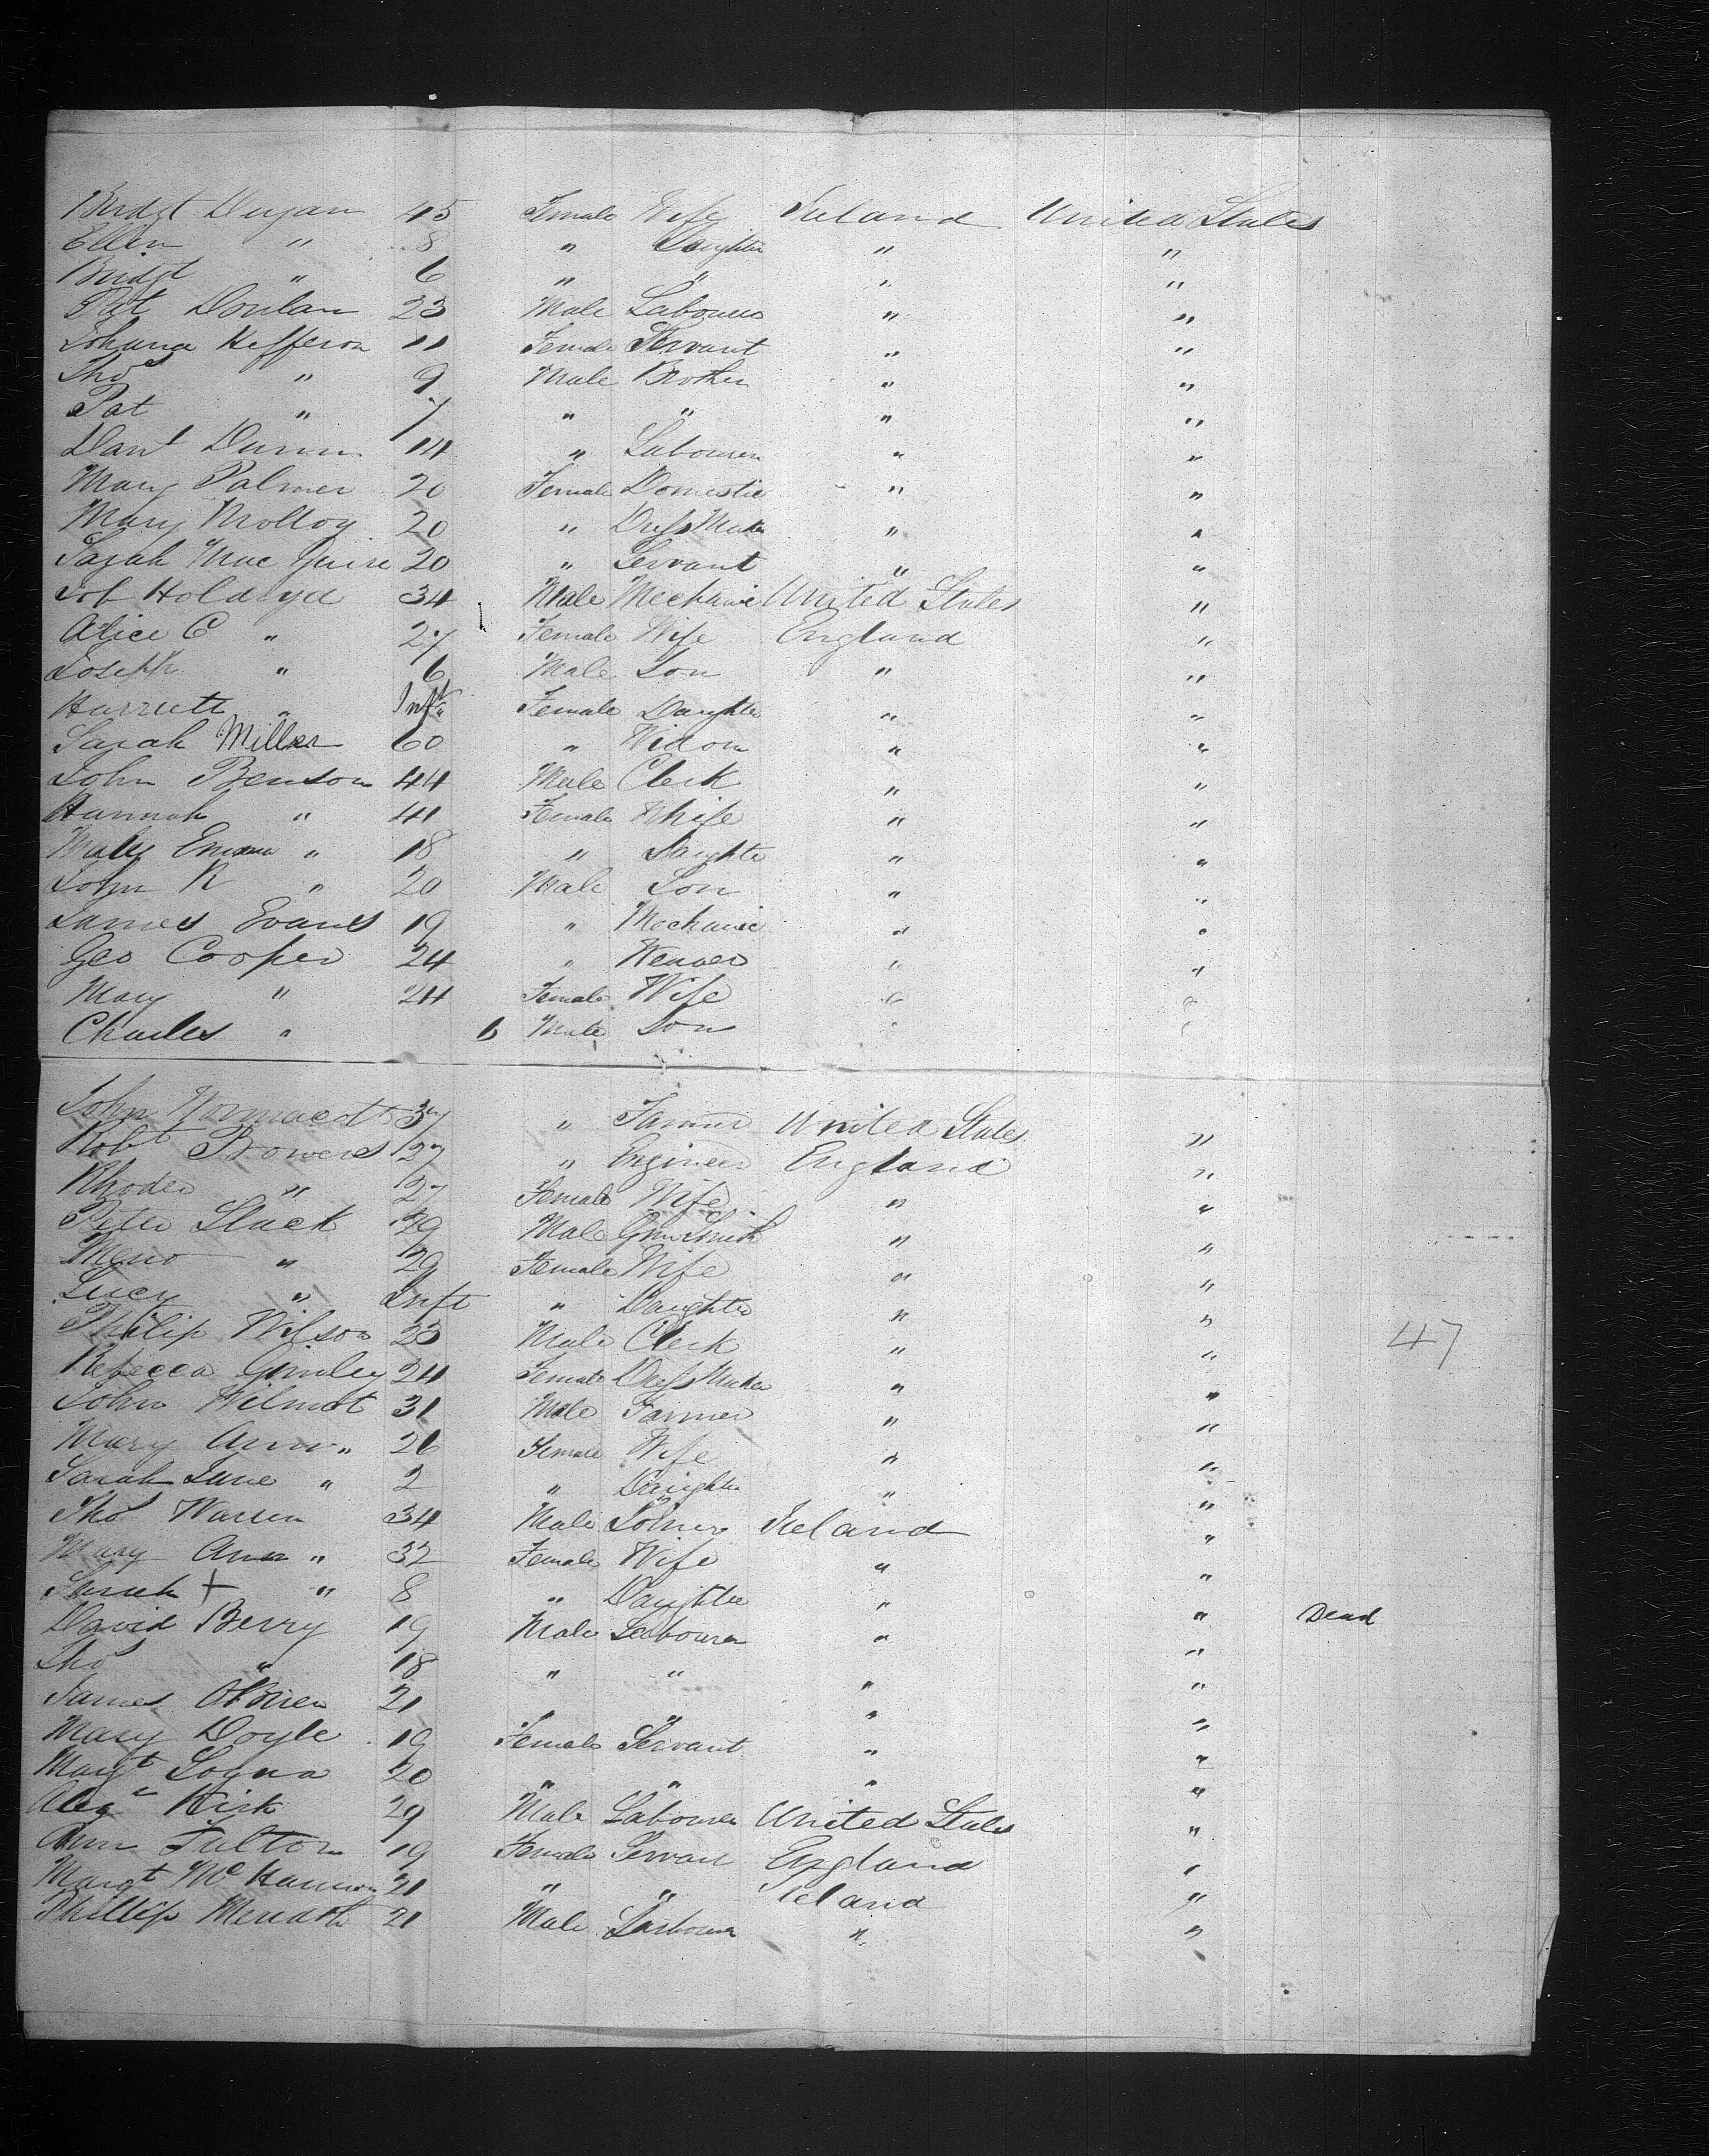 Bridgt Dugan 45 Female Wife Ireland United States
Ellen " 8 " Daughter " "
Bridgt " 6 " " " "
Pat Donlan 23 Male Labourer " "
Johana Hefferon 11 Female Servant " "
Thos " 9 Male Brother " "
Pat " 7 " " " "
Danl Dunn 14 " Labourer " "
Mary Palmer 20 Female Domestic " "
Mary Molloy 20 " Dress Maker " "
Sarah Mac Guire 20 " Servant " "
Job Holdroyd 34 Male Mechanic United States "
Alice C " 27 Female Wife England "
Joseph " 6 Male Son " "
Harriett " Inft Female Daughter " "
Sarah Miller 60 " Widow " "
John Benson 44 Male Clerk " "
Hannah " 41 Female Whife " "
Mary Emma " 18 " Daughter " "
John R " 20 Male Son " "
James Evans 19 " Mechanic " "
Geo Cooper 24 " Weaver " "
Mary " 24 Female Wife " "
Charles " 6 Male Son " "
John 37 " Farmer United States "
Robt Bowers 27 " Engineer England "
Rhoder " 27 Female Wife " "
Peter Slack 29 Male Gun Smith " "
" 29 Female Wife " "
Lucy " Inft " Daughter " "
Philip Wilson 23 Male Clerk " "
Rebecca 24 Female Dress Maker " "
John Wilmot 31 Male Farmer " "
Mary Ann " 26 Female Wife " "
Sarah Jane " 2 " Daughter " "
Thos Warren 34 Male Ireland "
Mary Ann " 32 Female Wife " "
Sarah + " 8 " Daughter " " Dead
David Berry 19 Male Labourer " "
Thos " 18 " " " "
James O'Brien 21 " " " "
Mary Doyle 19 Female Servant " "
Margt 20 " " " "
Kirk 29 Male Labourer United States "
Ann Fulton 19 Female Servan England "
Margt Mc 21 " " Ireland "
Phillip Meredith 21 Male Larbourer " "
47